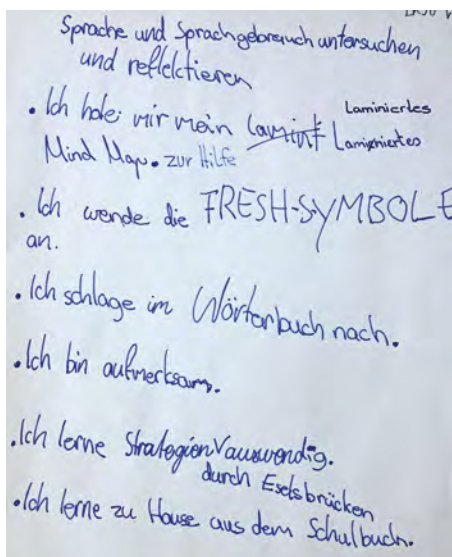 Sprache und Sprachgebrauch untersuchen
und reflektieren
• Ich hole mir mein Lamint Laminiertes
Laminiertes
Mind Map. zur Hilfe
• Ich wende die FRESH-SYMBOLE
an.
• Ich schlage im Wörterbuch nach.
• Ich bin aufmerksam.
• Ich lerne Strategien auswendig.
durch Eselsbrücken
• Ich lerne zu Hause aus dem Schulbuch.